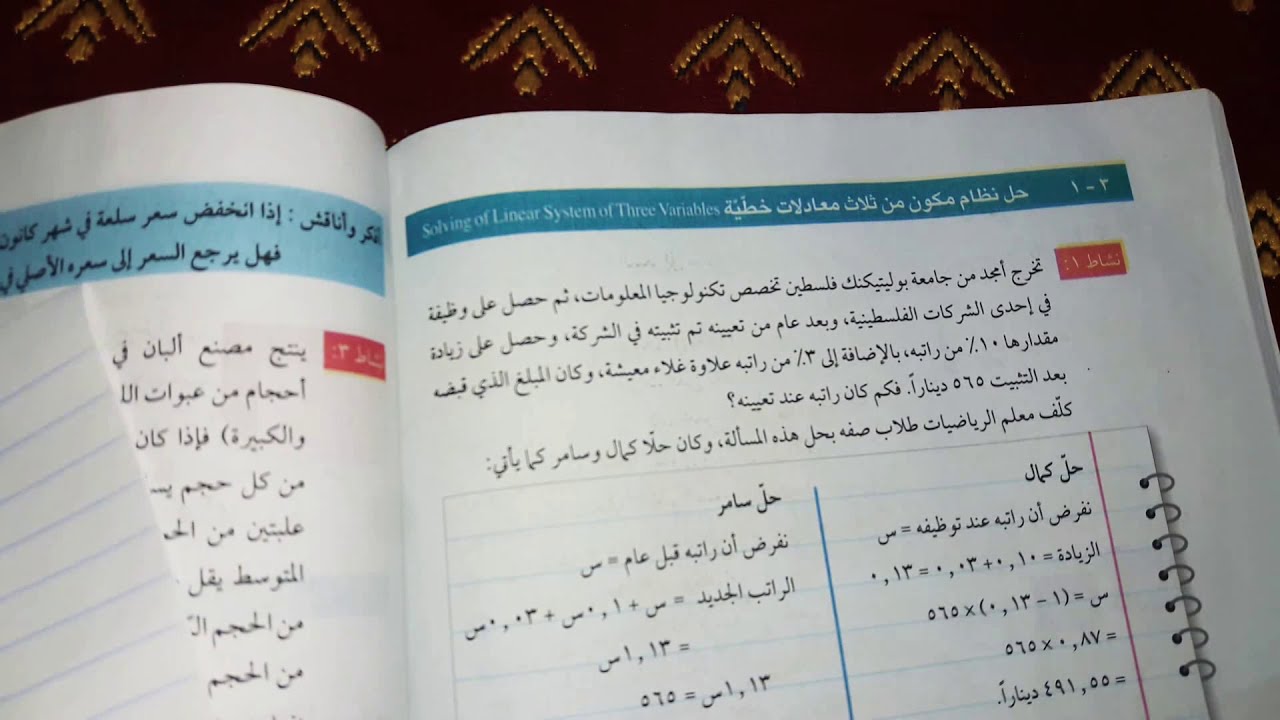 ١ - ٣ حل نظام مكون من ثلاث معادلات خطيّة Solving of Linear System of Three Variables
نشاط ١:
تخرج أمجد من جامعة بوليتيكنك فلسطين تخصص تكنولوجيا المعلومات، ثم حصل على وظيفة
في إحدى الشركات الفلسطينية، وبعد عام من تعيينه تم تثبيته في الشركة، وحصل على زيادة
مقدارها ١٠٪ من راتبه، بالإضافة إلى ٣٪ من راتبه علاوة غلاء معيشة، وكان المبلغ الذي قبضه
بعد التثبيت ٥٦٥ ديناراً. فكم كان راتبه عند تعيينه؟
كلّف معلم الرياضيات طلاب صفه بحل هذه المسألة، وكان حلّا كمال وسامر كما يأتي:
حلّ كمال
نفرض أن راتبه عند توظيفه = س
الزيادة = ٠,١٠ + ٠,٠٣ = ٠,١٣
س = (١ - ٠,١٣) × ٥٦٥
= ٠,٨٧ × ٥٦٥
= ٤٩١,٥٥ ديناراً.
حلّ سامر
نفرض أن راتبه قبل عام = س
الراتب الجديد = س + ٠,١س + ٠,٠٣س
= ١,١٣س
١,١٣س = ٥٦٥
أفكر وأناقش : إذا انخفض سعر سلعة في شهر كانون
فهل يرجع السعر إلى سعره الأصلي في
نشاط ٣:
ينتج مصنع ألبان في
أحجام من عبوات
والكبيرة) فإذا كان
من كل حجم
علبتين من
المتوسط يقل
من الحجم
من الحجم